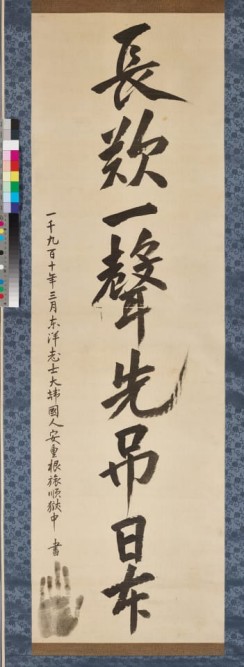 長歎一聲先吊日本
一千九百十年三月 東洋志士大韓國人安重根 旅順獄中 書